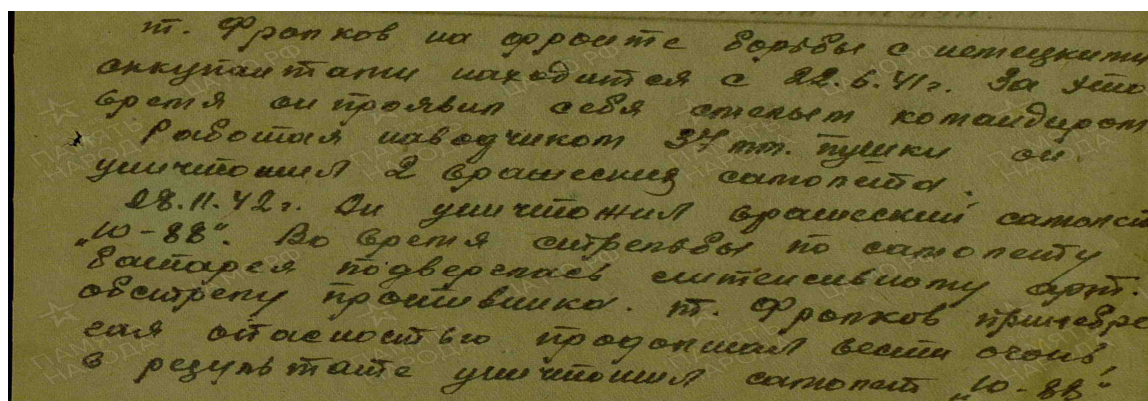 т. Фролков на фронте борьбы с немецкими
оккупантами находится с 22.6.41г. За это
время он проявил себя смелым командиром
Работая наводчиком 37 мм. пушки он
уничтожил 2 вражеских самолета.
28.11.42г. Он уничтожил вражеский самолет
„Ю-88". Во время стрельбы по самолету
батарея подверглась интенсивному арт.
обстрелу противника. т. Фролков пренебре
гая опасностью продолжал вести огонь,
в результате уничтожил самолет „Ю-88"